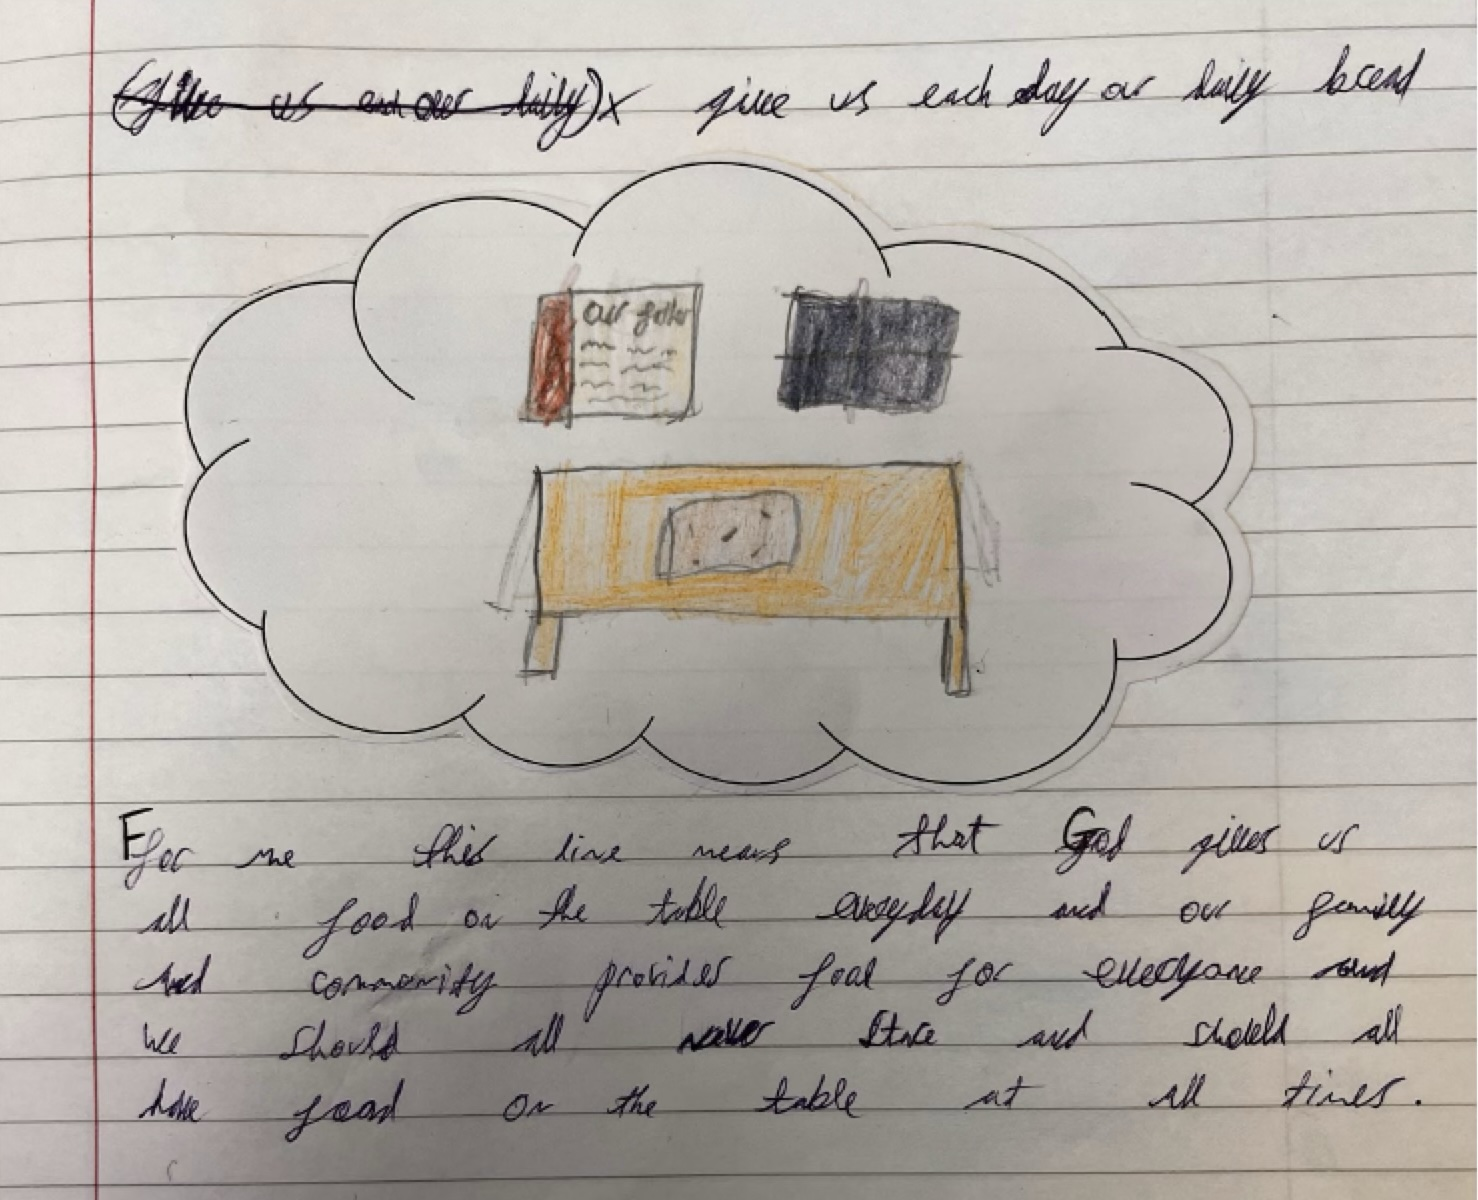 (Give us each our daily)x give us each day our daily bread
our father
For me this line means that God gives us
all food on the table everyday and our family
and community provides food for everyone and
we should all never starve and should all
have food on the table at all times.